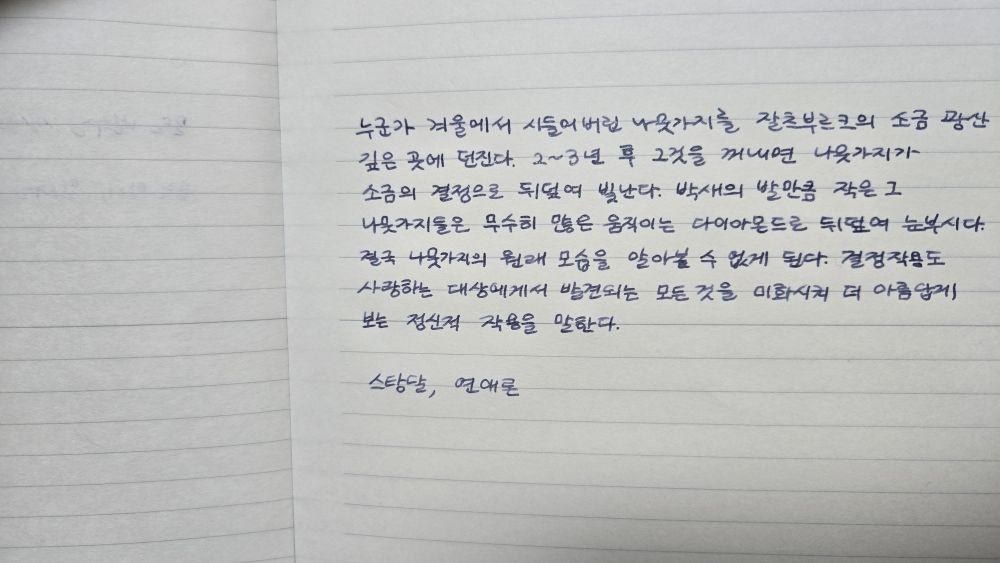 누군가 겨울에서 시들어버린 나뭇가지를 잘츠부르크의 소금 광산
깊은 곳에 던진다. 2~3년 후 그것을 꺼내면 나뭇가지가
소금의 결정으로 뒤덮여 빛난다. 박새의 발만큼 작은 그
나뭇가지들은 무수히 많은 움직이는 다이아몬드로 뒤덮여 눈부시다.
결국 나뭇가지의 원래 모습을 알아볼 수 없게 된다. 결정작용도
사랑하는 대상에게서 발견되는 모든 것을 미화시켜 더 아름답게
보는 정신적 작용을 말한다.
스탕달, 연애론